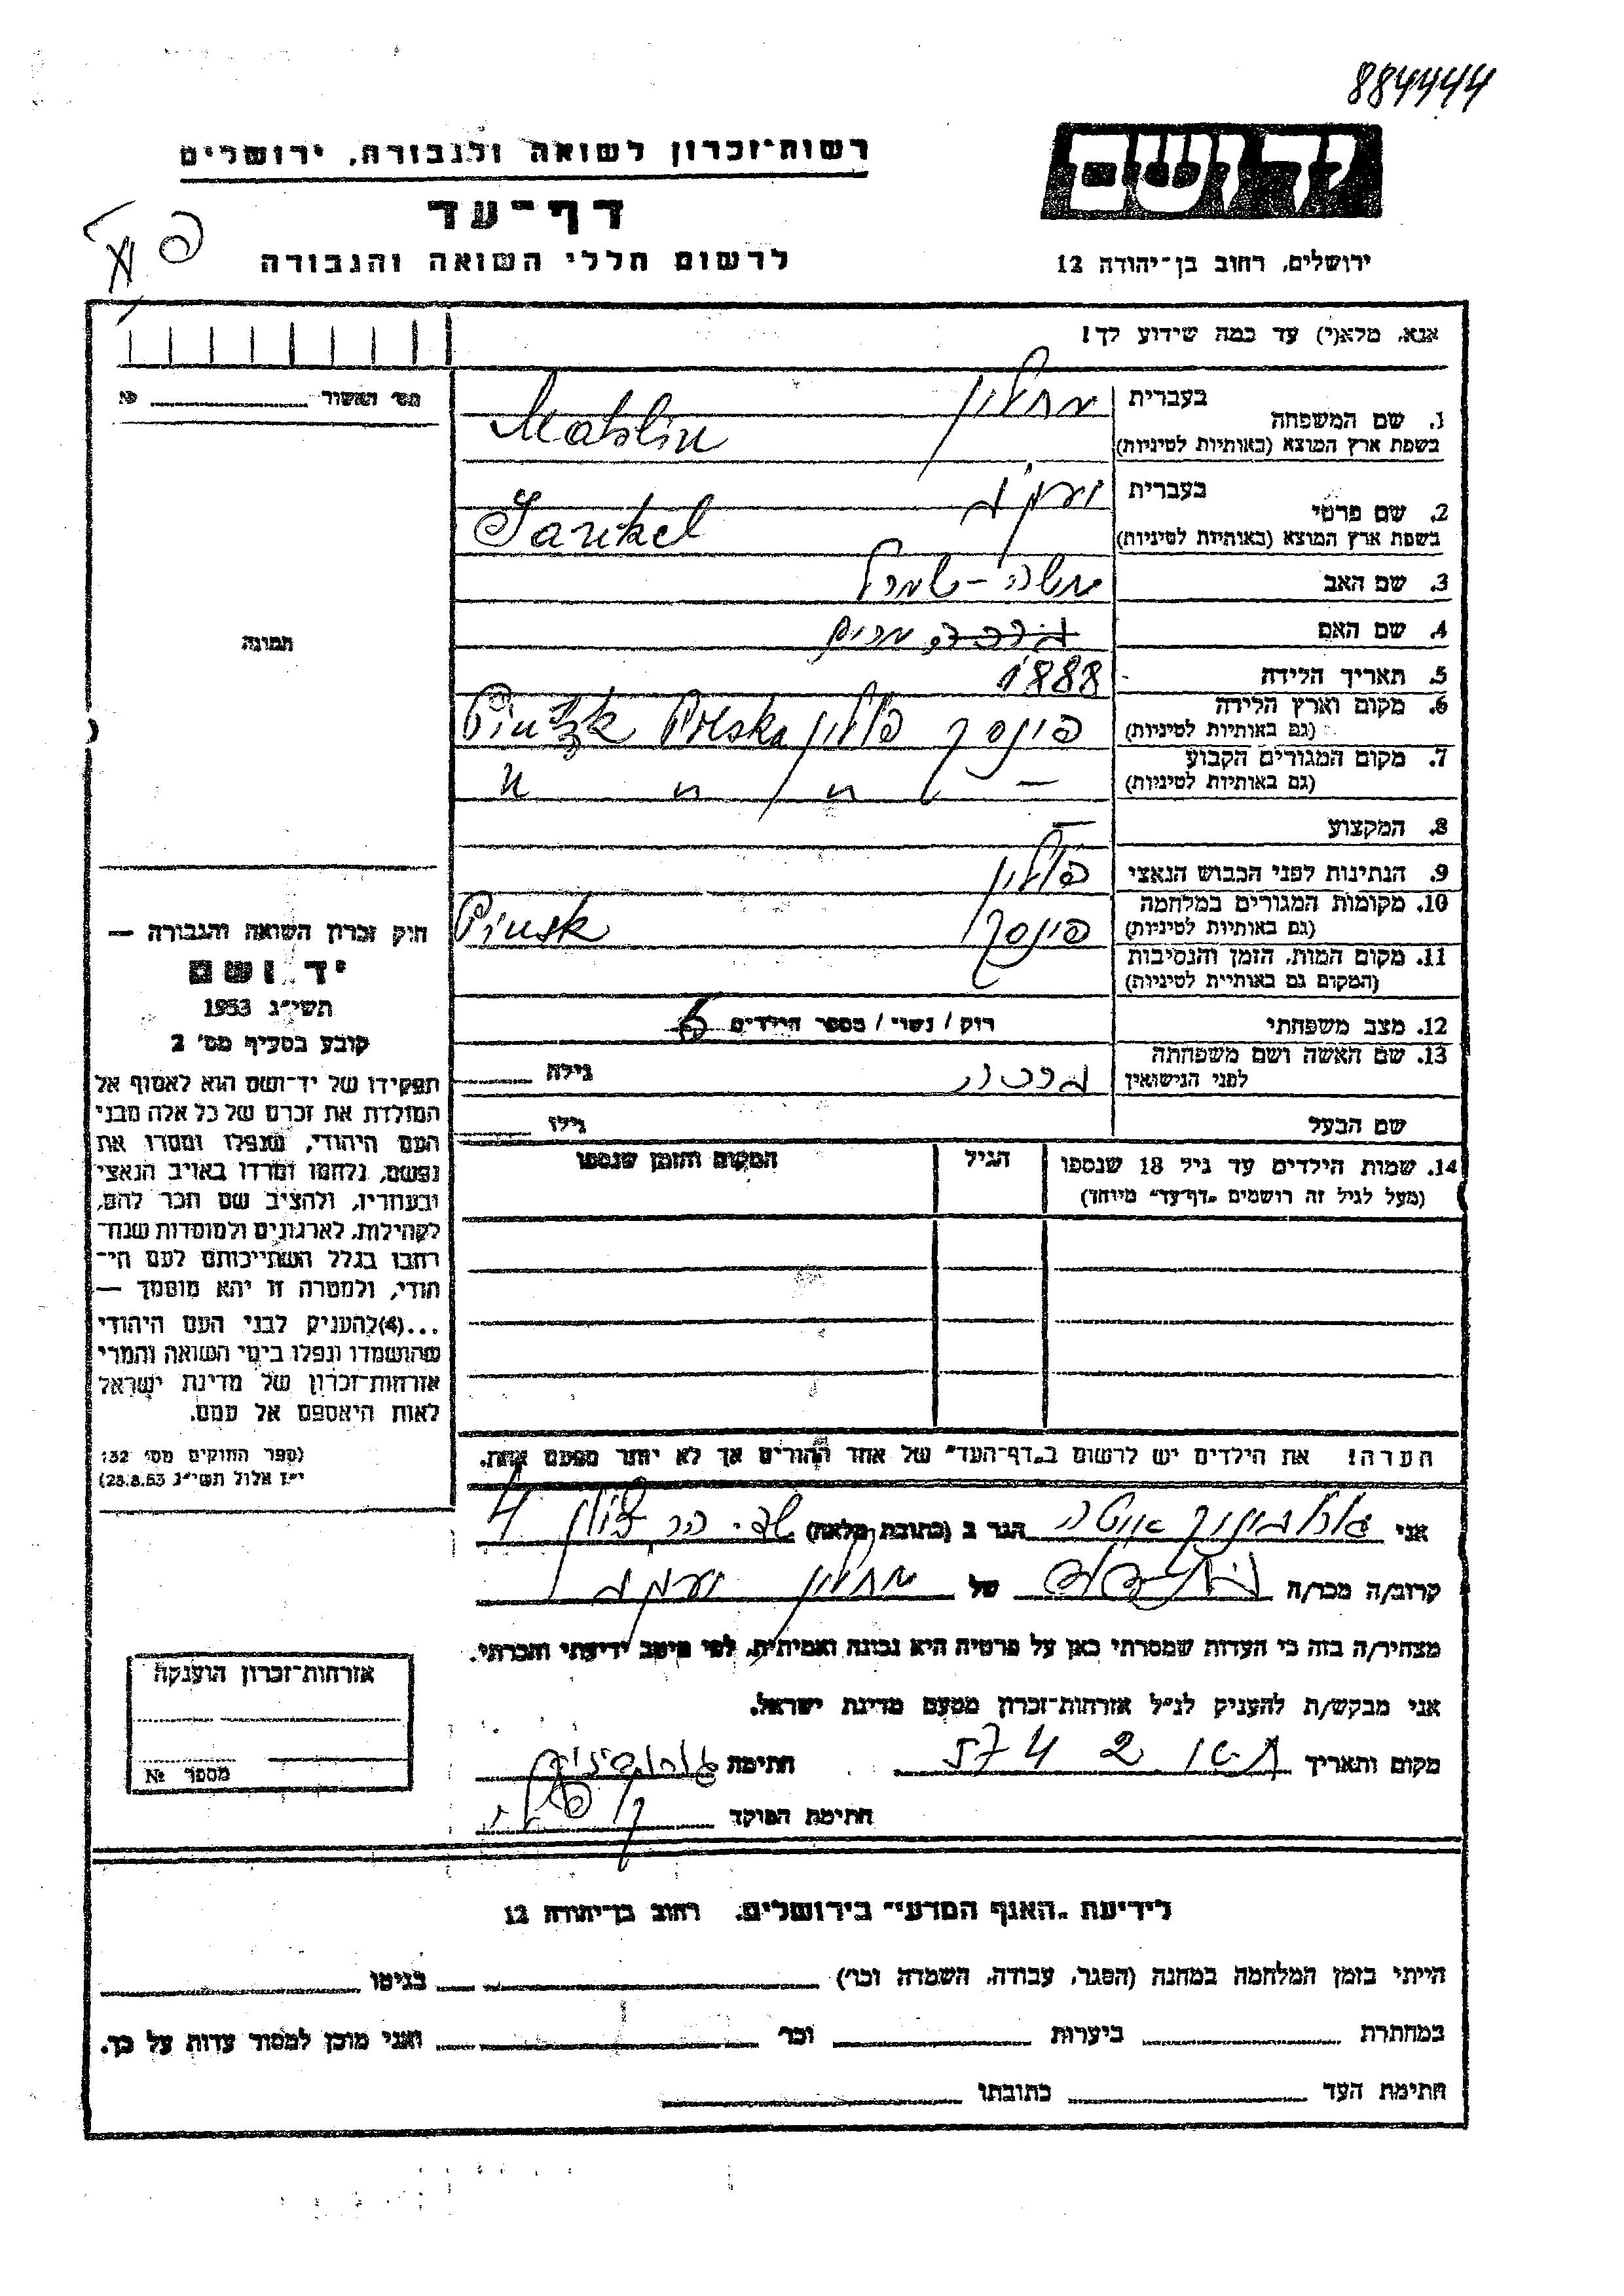 884444
רשות־זכרון לשואה ולגבורה, ירושלים
דף־עד
לרשום חללי השואה והגבורה
יד ושם
ירושלים, רחוב בן־יהודה 12
אנא, מלא(י) עד כמה שידוע לך!
מס׳ האשור №
1. שם המשפחה בעברית מחלין
בשפת ארץ המוצא (באותיות לטיניות) Mahlin
2. שם פרטי בעברית יענקל
בשפת ארץ המוצא (באותיות לטיניות) Jankel
3. שם האב משה-שמואל
4. שם האם מרים
5. תאריך הלידה 1888
6. מקום וארץ הלידה (גם באותיות לטיניות) פינסק פולין Polska Pinsk
7. מקום המגורים הקבוע (גם באותיות לטיניות) — " " " "
8. המקצוע —
9. הנתינות לפני הכבוש הנאצי פולין
10. מקומות המגורים במלחמה (גם באותיות לטיניות) פינסק Pinsk
11. מקום המות, הזמן והנסיבות (המקום גם באותיות לטיניות)
12. מצב משפחתי רוק / נשוי / מספר הילדים 6
13. שם האשה ושם משפחתה לפני הנישואין גילה
שם הבעל גילו
14. שמות הילדים עד גיל 18 שנספו (מעל לגיל זה רושמים „דף־עד״ מיוחד) הגיל המקום והזמן שנספו
הערה! את הילדים יש לרשום ב„דף־העד״ של אחד ההורים אך לא יותר מפעם אחת.
תמונה
חוק זכרון השואה והגבורה —
יד ושם
תשי״ג 1953
קובע בסעיף מס׳ 2
תפקידו של יד־ושם הוא לאסוף אל
המולדת את זכרם של כל אלה מבני
העם היהודי, שנפלו ומסרו את
נפשם, נלחמו ומרדו באויב הנאצי
ובעוזריו, ולהציב שם וזכר להם,
לקהילות, לארגונים ולמוסדות שנח־
רבו בגלל השתייכותם לעם הי־
הודי, ולמטרה זו יהא מוסמך —
...(4)להעניק לבני העם היהודי
שהושמדו ונפלו בימי השואה והמרי
אזרחות־זכרון של מדינת ישראל
לאות היאספם אל עמם.
(ספר החוקים מס׳ 132
י״ז אלול תשי״ג 28.8.53)
אני הגר ב (כתובת מלאה) שד. הר ציון 4
קרוב/ה מכר/ה של מחלין יענקל
מצהיר/ה בזה כי העדות שמסרתי כאן על פרטיה היא נכונה ואמיתית, לפי מיטב ידיעתי והכרתי.
אני מבקש/ת להעניק לנ״ל אזרחות־זכרון מטעם מדינת ישראל.
מקום ותאריך 2 4 57 חתימה
חתימת הפוקד
אזרחות־זכרון הוענקה
מספר №
לידיעת „האגף המדעי״ בירושלים, רחוב בן־יהודה 12
הייתי בזמן המלחמה במחנה (הסגר, עבודה, השמדה וכו׳) בגיטו
במחתרת ביערות וכו׳ ואני מוכן למסור עדות על כך.
חתימת העד כתובתו